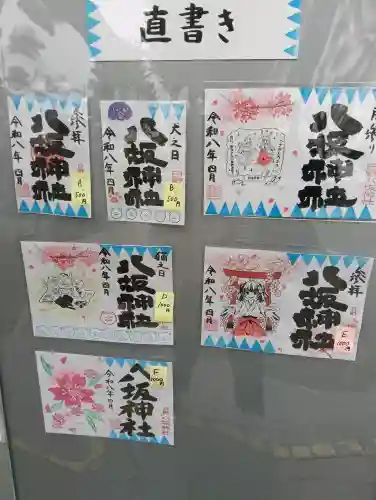 直書き
参拝
八坂神社
令和八年四月
A
500円
犬之日
八坂神社
令和八年四月
B
500円
八坂神社
令和八年四月
猫之日
八坂神社
令和八年四月
D
1000円
参拝
八坂神社
令和八年四月
E
1000円
八坂神社
令和八年四月
F
1000円